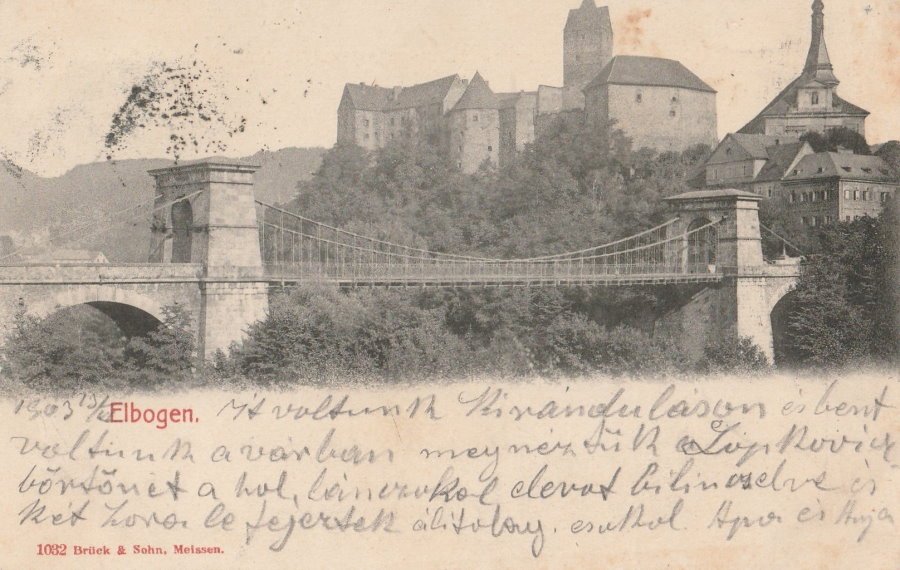 1903 Elbogen. Itt voltunk Kiránduláson és bent
voltunk a várban megnéztük a Lopkovicz
börtönét a hol, lánczokal elevet bilincselve és
két Lova le fejertek álitolag. csokol Apa és Anja
1032 Brück & Sohn, Meissen.